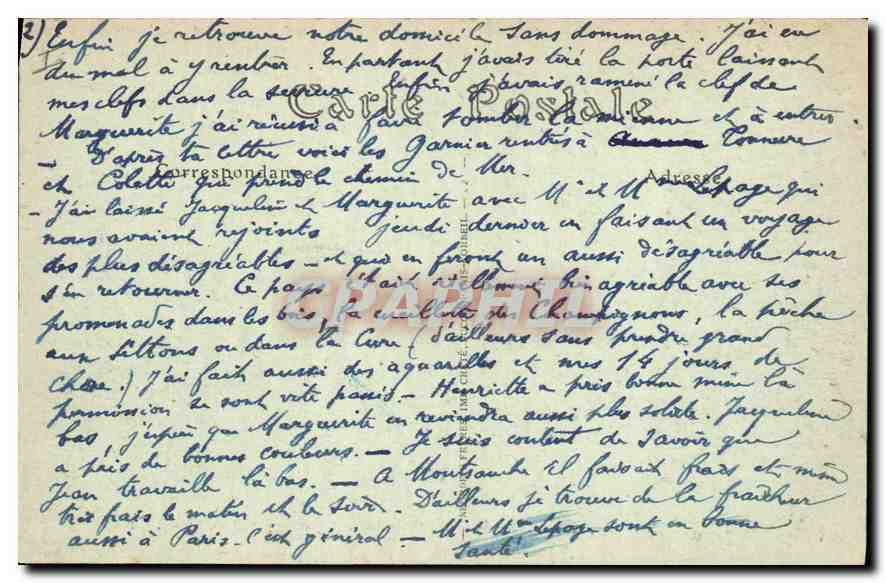 2) Enfin je retrouve notre domicile sans dommage. J'ai eu
du mal à y rentrer. En partant j'avais tiré la porte laissant
mes clefs dans la serrure. Enfin j'avais ramené la clef de
Carte Postale
Marguerite j'ai réussi à faire tomber la mienne et à entrer
- D'après ta lettre voici les Garnier rentrés à Tonnerre
Correspondance
Adresse
et Colette qui prend le chemin de Mer.
- J'ai laissé Jacqueline et Marguerite avec Mr et Mme Lepage qui
nous avaient rejoints jeudi dernier en faisant un voyage
des plus désagréables - et qui en feront un aussi désagréable pour
s'en retourner. Ce pays était réellement bien agréable avec ses
promenades dans les bois, la cueillette des Champignons, la pêche
CPARAMA
aux Settons ou dans la Cure (d'ailleurs sans prendre grand
chose.) J'ai fait aussi des aquarelles et mes 14 jours de
permission se sont vite passés - Henriette a pris bonne mine là
bas, j'espère que Marguerite en reviendra aussi plus solide. Jacqueline
a pris de bonnes couleurs. - Je suis content de savoir que
Jean travaille là bas. - A Montsauche il faisait frais et même
très frais le matin et le soir. D'ailleurs je trouve de la fraîcheur
aussi à Paris - c'est général - Mr et Mme Lepage sont en bonne
santé.